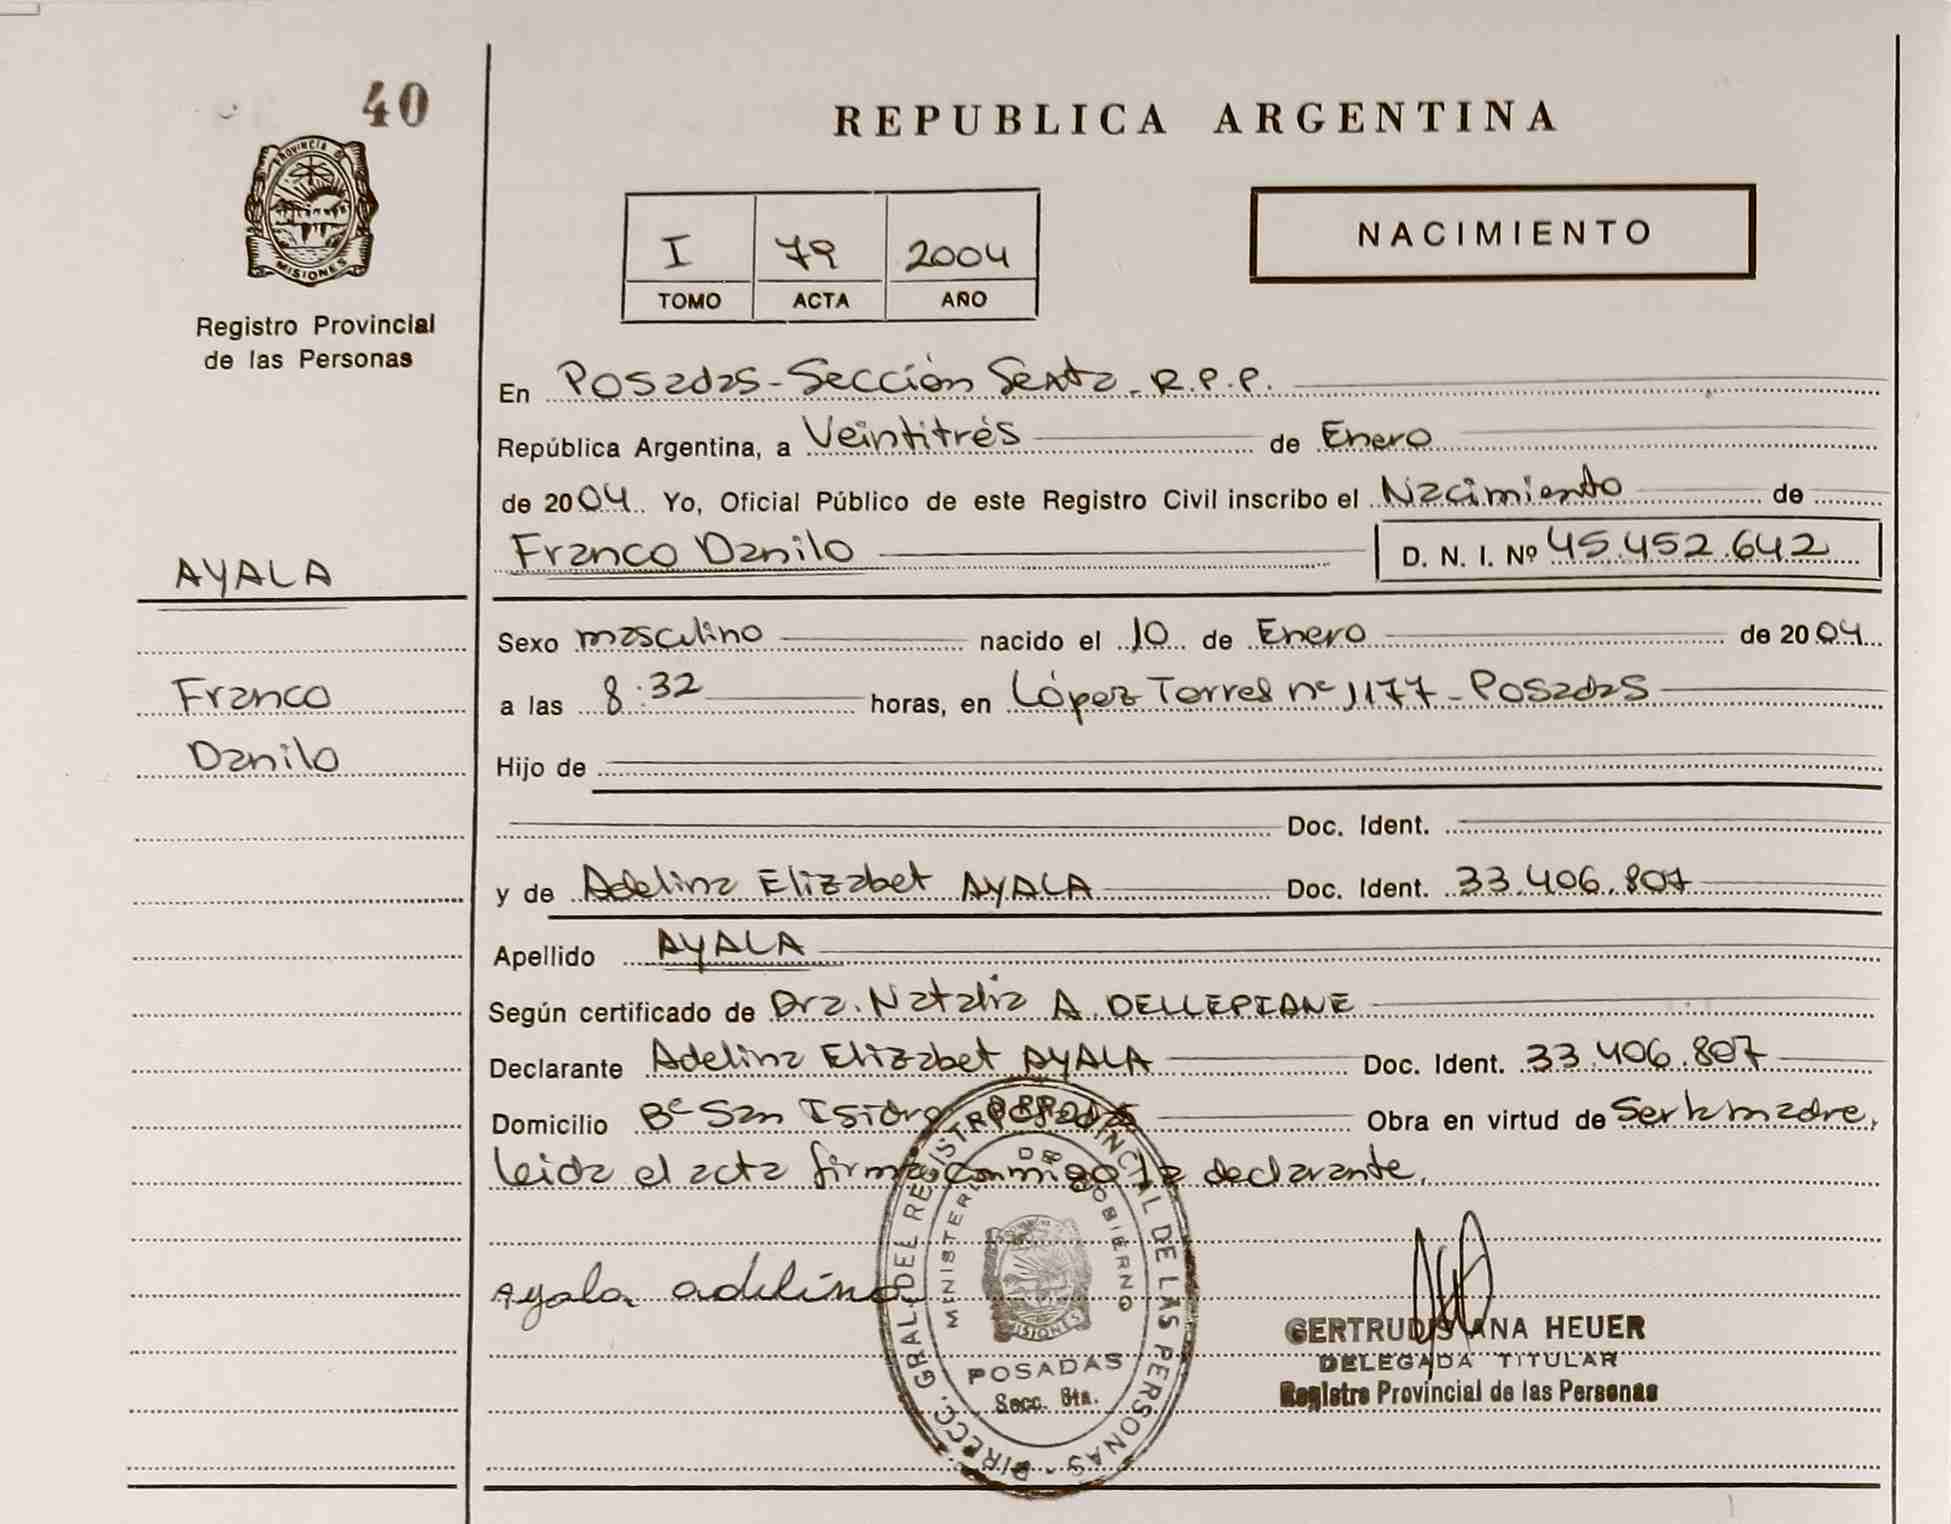 40
PROVINCIA DE
MISIONES
Registro Provincial
de las Personas
REPUBLICA ARGENTINA
I 79 2004
TOMO ACTA AÑO
NACIMIENTO
En Posadas - Sección Sexta - R.P.P.
República Argentina, a Veintitrés de Enero
de 2004. Yo, Oficial Público de este Registro Civil inscribo el Nacimiento de
Franco Danilo D. N. I. Nº 45.452.642
AYALA
Franco
Danilo
Sexo masculino nacido el 10 de Enero de 2004
a las 8:32 horas, en López Torres nº 1177 - Posadas
Hijo de
Doc. Ident.
y de Adelina Elizabet AYALA Doc. Ident. 33.406.807
Apellido AYALA
Según certificado de Dra. Natalia A. DELLEPIANE
Declarante Adelina Elizabet AYALA Doc. Ident. 33.406.807
Domicilio Bº San Isidro Posadas Obra en virtud de Ser la madre,
leida el acta firma conmigo la declarante.
Ayala adelina
DIRECC. GRAL. DEL REGISTRO PROVINCIAL DE LAS PERSONAS -
MINISTERIO DE GOBIERNO
MISIONES
POSADAS
Secc. 6ta.
GERTRUDIS ANA HEUER
DELEGADA TITULAR
Registro Provincial de las Personas